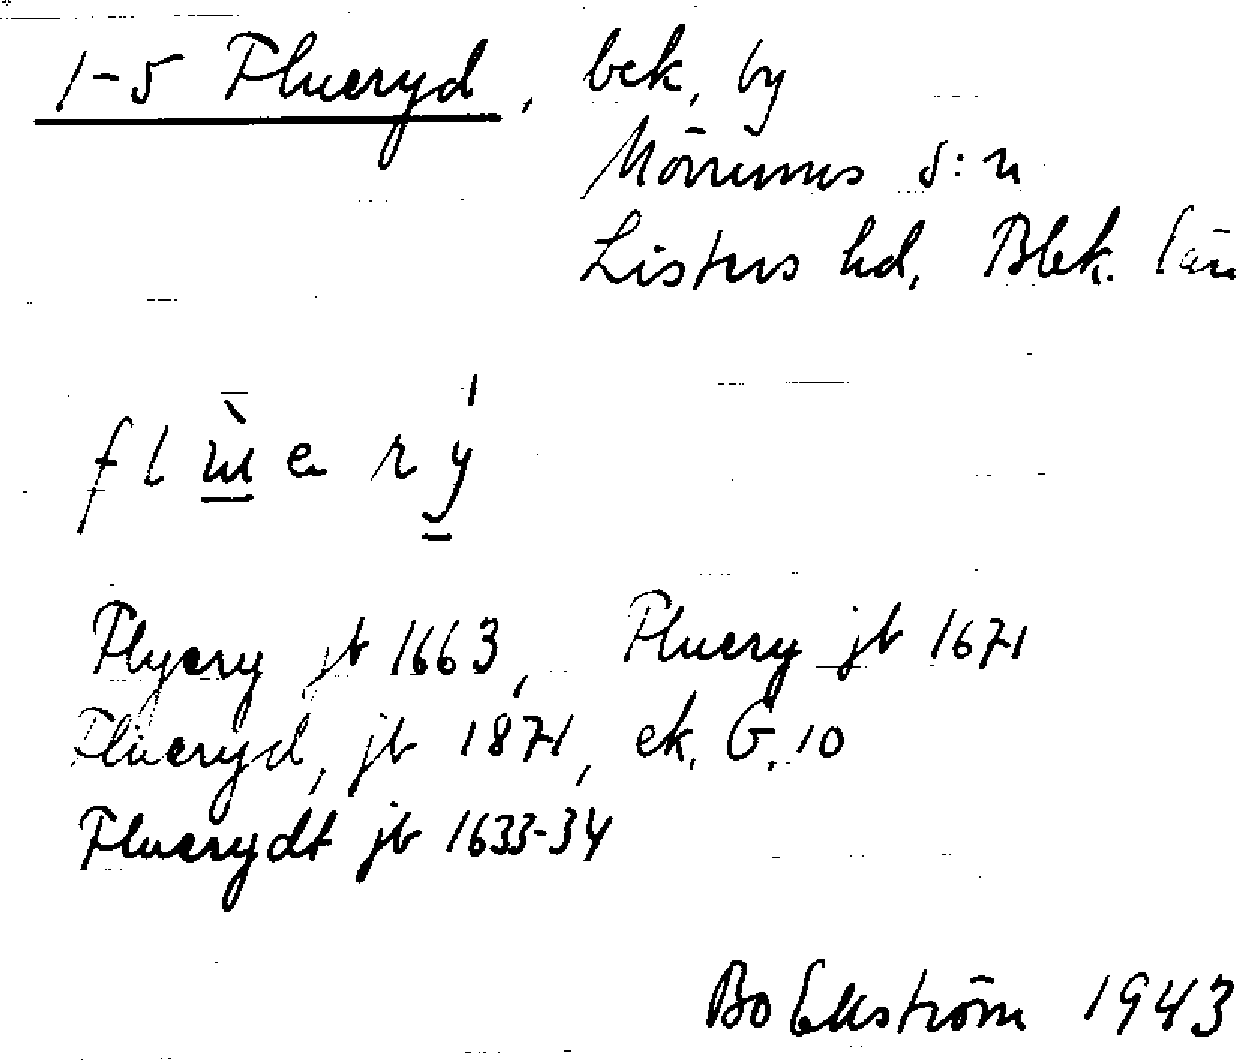 1-5 Flueryd, bek, by
Mörrums s:n
Listers hd, Blek. län
flɯ̀e rý
Flyery jb 1663, Fluery jb 1671
Flueryd, jb 1871, ek. G. 10
Fluerydt jb 1633-34
Bo Ekström 1943